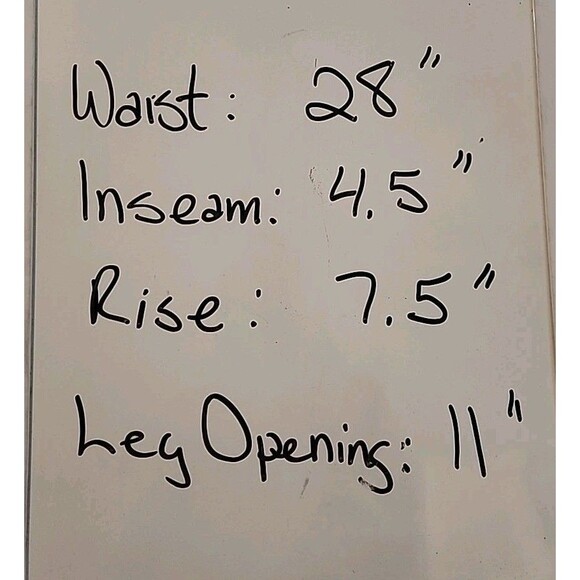 Waist: 28"
Inseam: 4.5"
Rise: 7.5"
Leg Opening: 11"